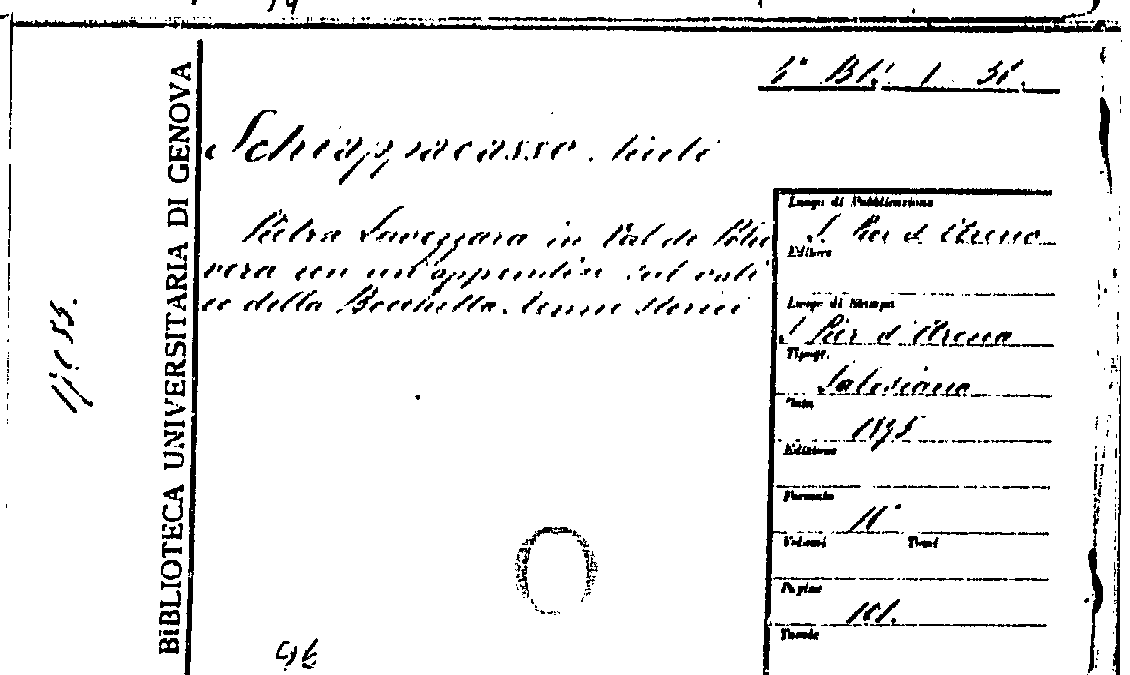 BIBLIOTECA UNIVERSITARIA DI GENOVA
Schiappacasse
Pietra Lavezzara in Val di Polce
vera con un'appendice sul vali
co della Bocchetta. Cenni storici
Luogo di Pubblicazione
S. Pier d'Arena
Editore
Luogo di Stampa
S. Pier d'Arena
Tipogr.
Salesiana
Data
Edizione
Formato
Volumi Tomi
Pagine
101.
Tavole
96